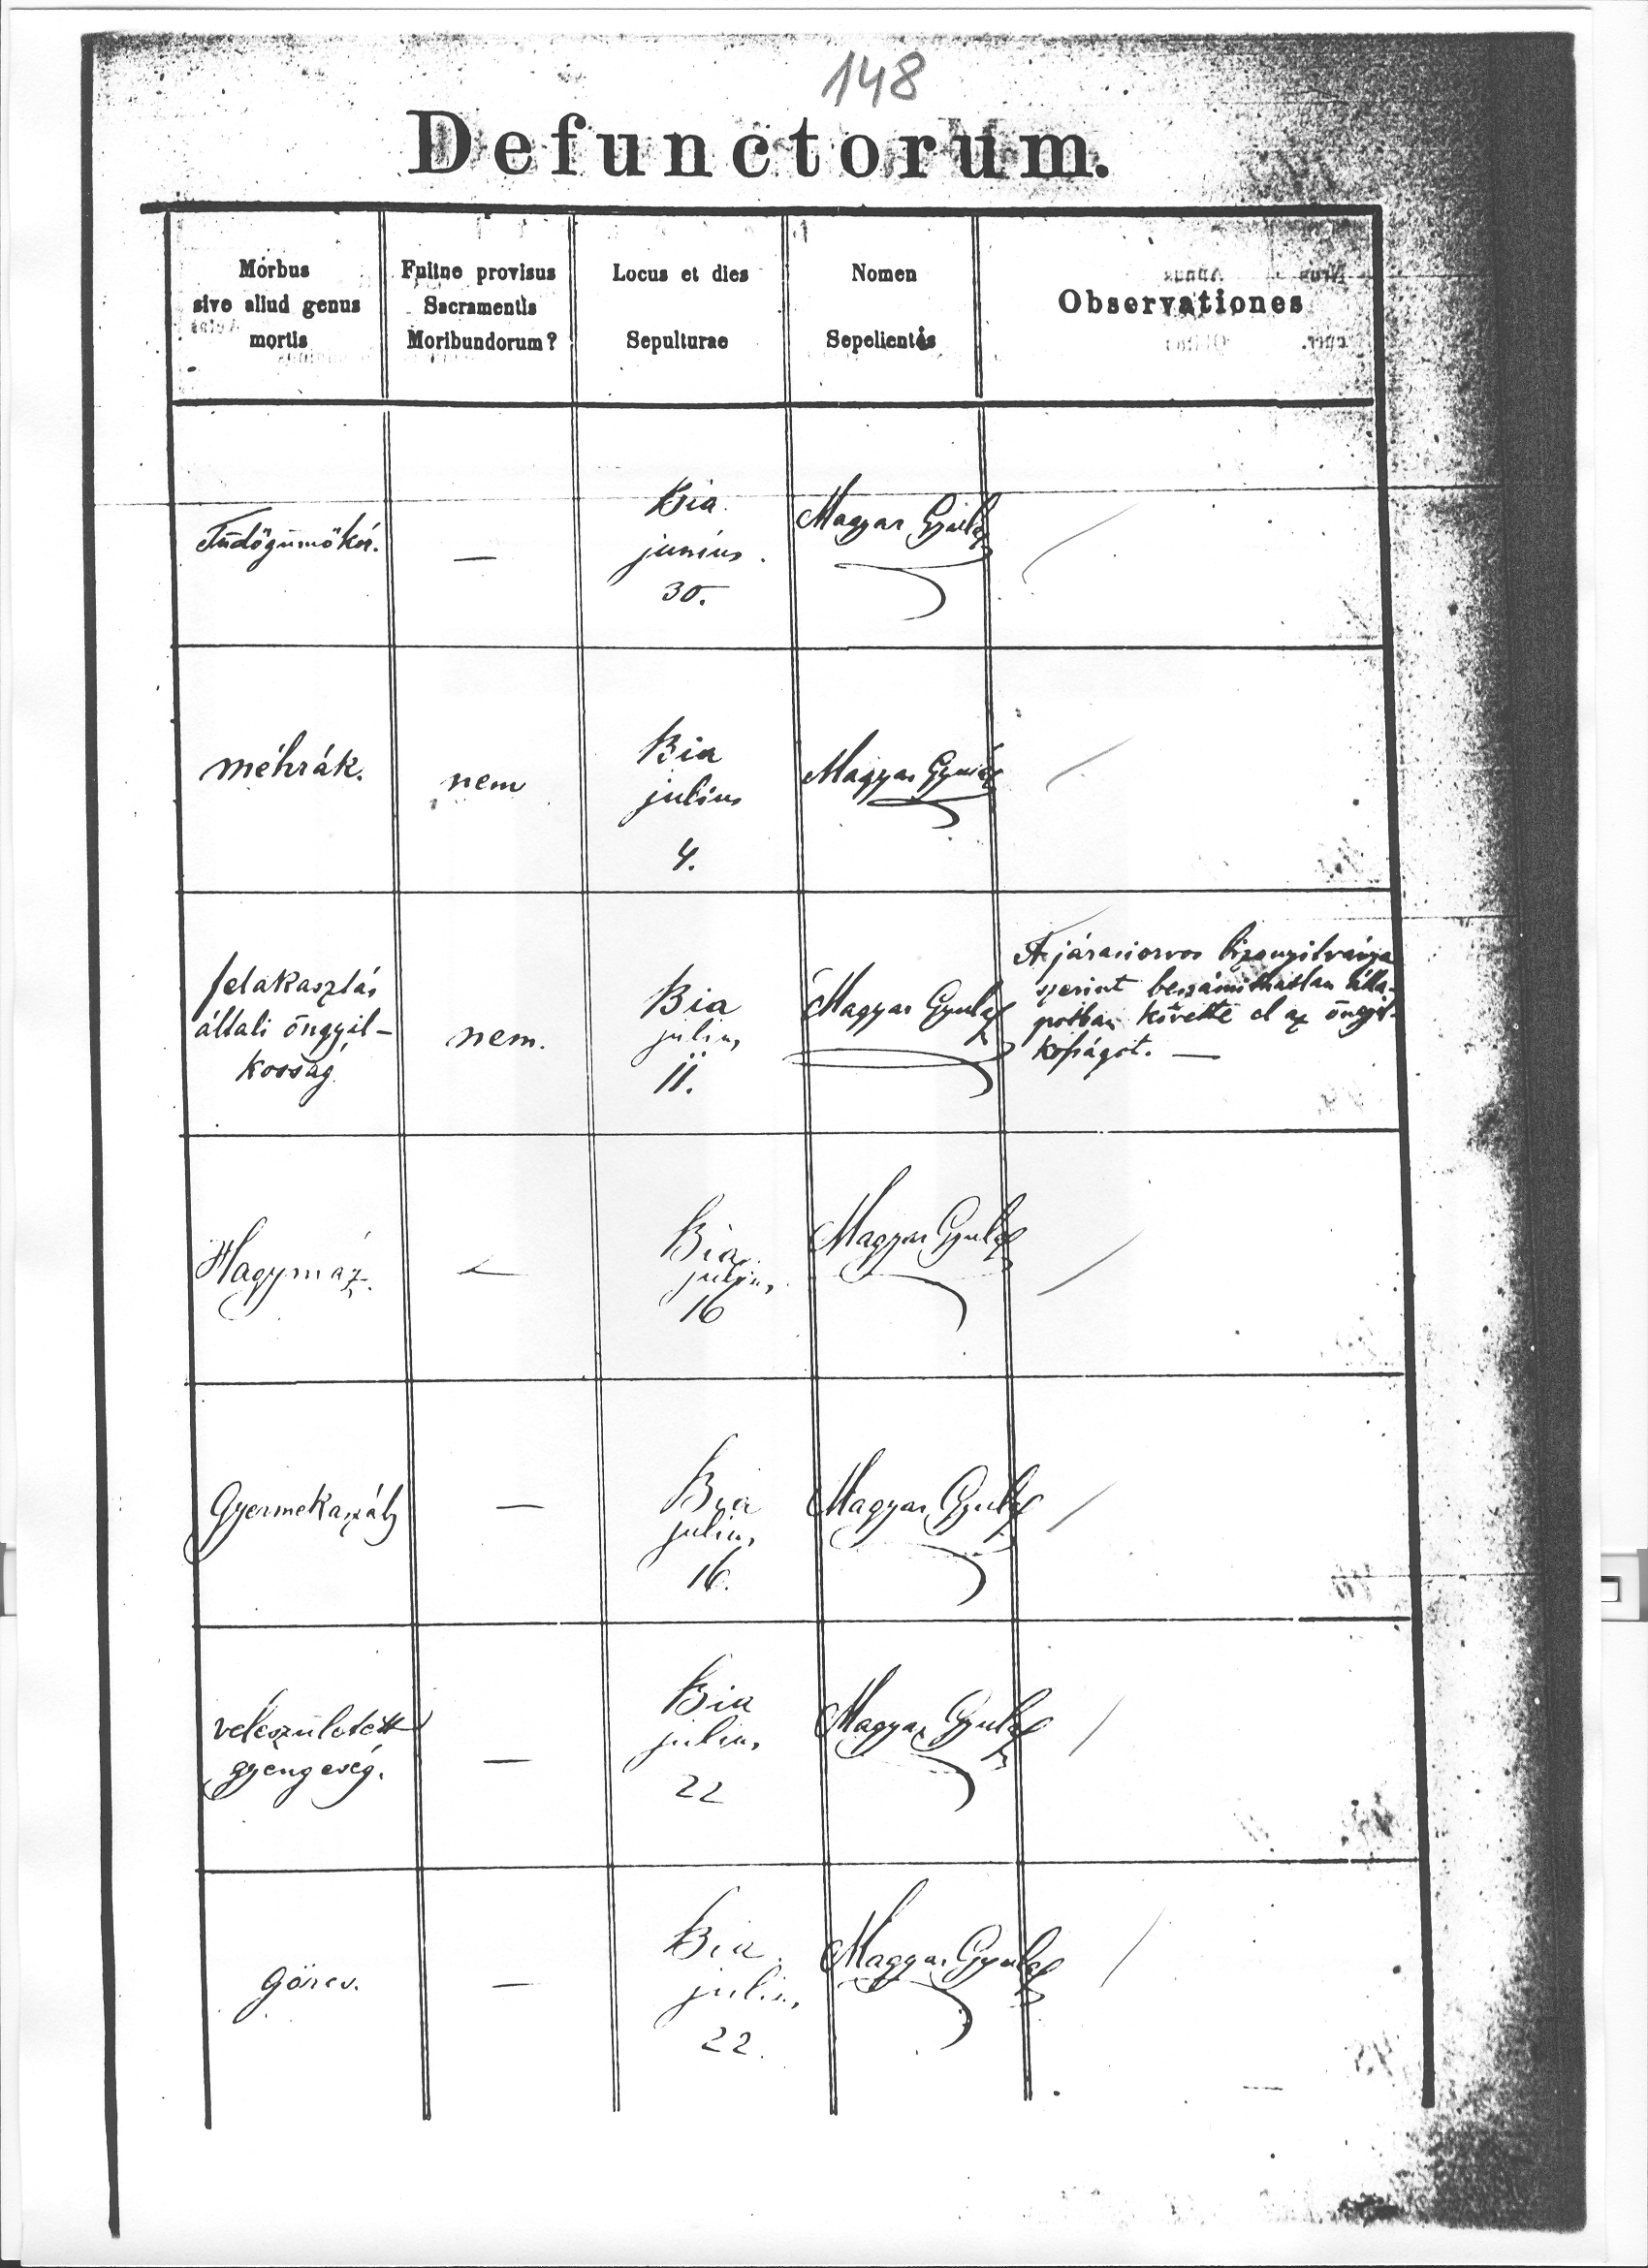 148
Defunctorum.
Morbus
sive aliud genus
mortis
Fuitne provisus
Sacramentis
Moribundorum?
Locus et dies
Sepulturae
Nomen
Sepelientis
Observationes
Tüdőgümőkór.
—
Bia
junius
30.
Magyar Gyula
méhrák.
nem
Bia
julius
4.
Magyar Gyula
felakasztás
általi öngyil-
kosság
nem.
Bia
julius
11.
Magyar Gyula
A járasiorvos bizonyitványa
szerint beszámithatlan álla-
potban követte el az öngyil-
kosságot. —
Hagymáz.
—
Bia
julius
16
Magyar Gyula
Gyermekaszály
—
Bia
julius
16.
Magyar Gyula
veleszületett
gyengeség.
—
Bia
julius
22
Magyar Gyula
görcs.
—
Bia
julius
22.
Magyar Gyula